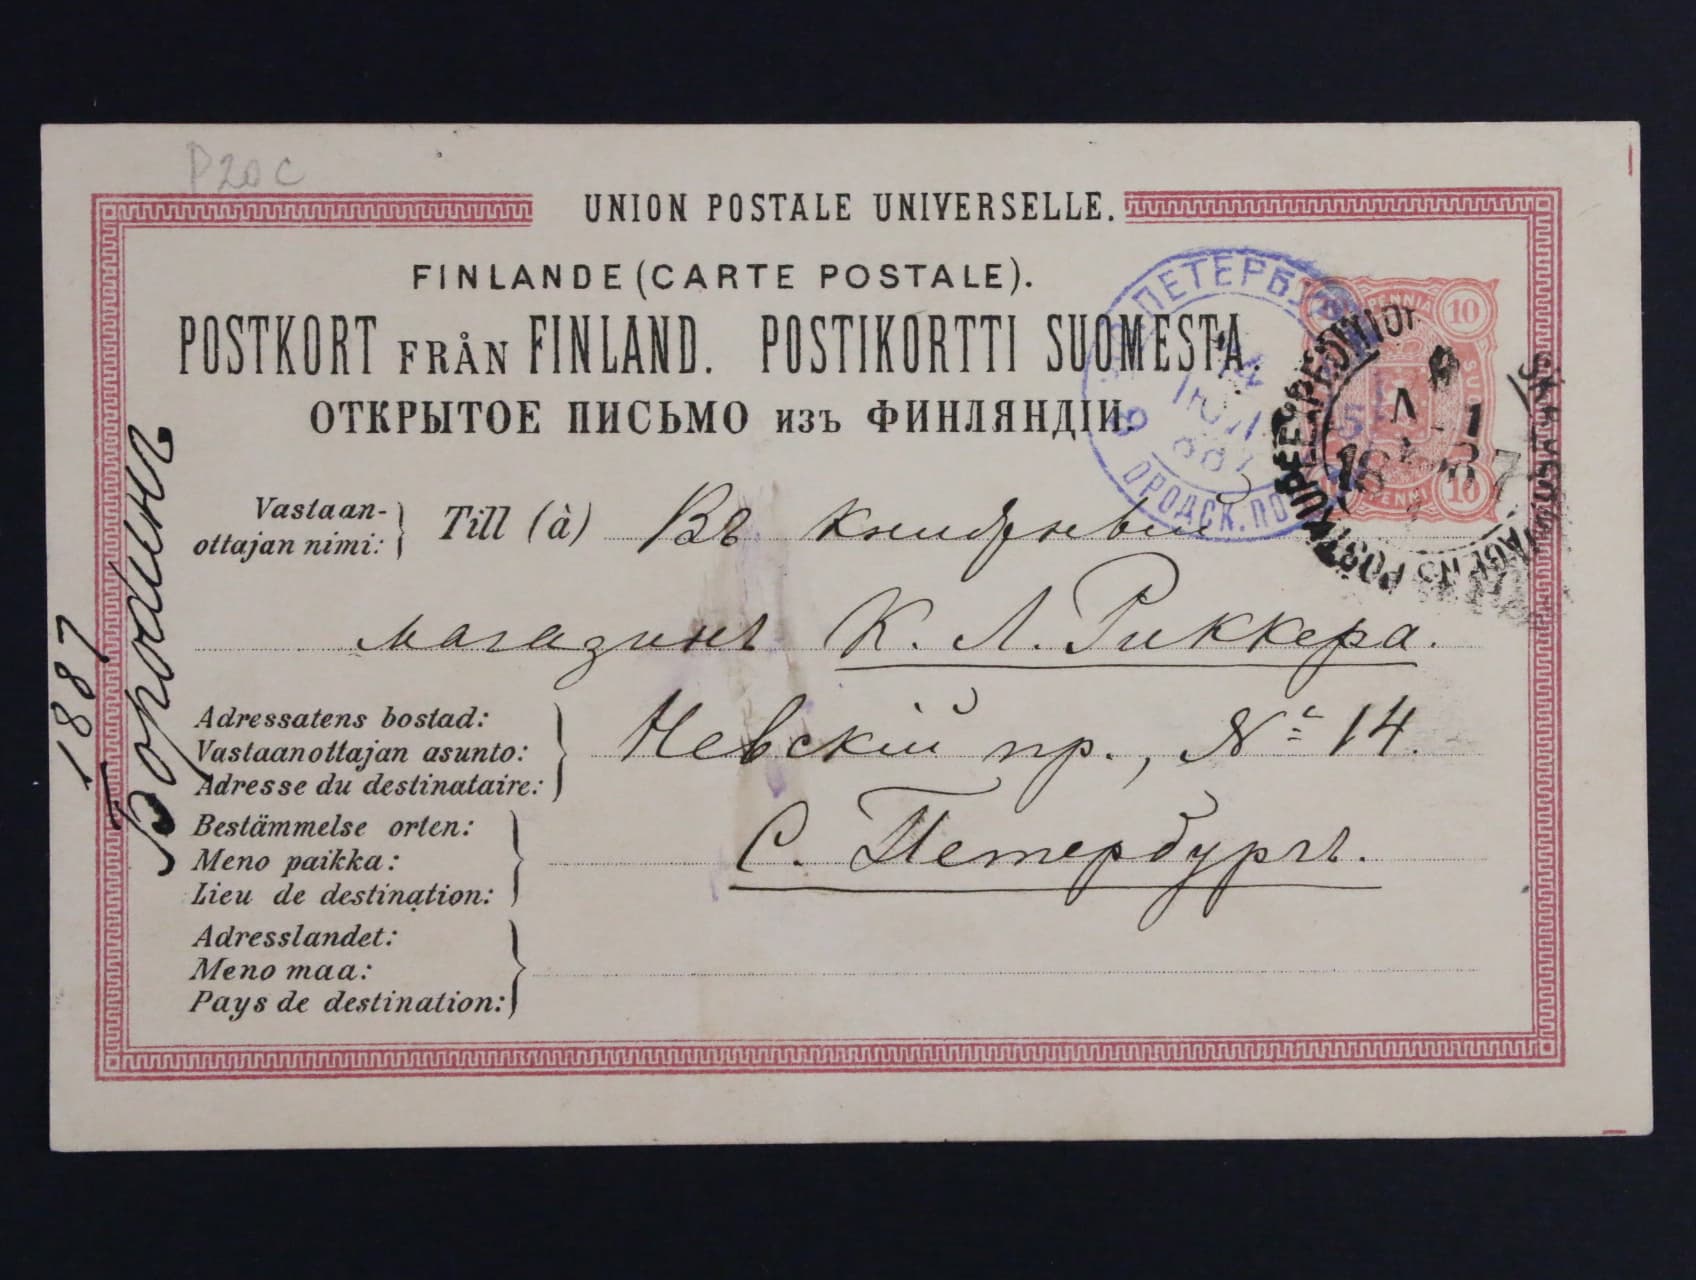 P20C
UNION POSTALE UNIVERSELLE.
FINLANDE (CARTE POSTALE).
POSTKORT FRÅN FINLAND. POSTIKORTTI SUOMESTA.
ОТКРЫТОЕ ПИСЬМО изъ ФИНЛЯНДІИ.
PENNIA 10
SUO
PENNI 10
ПЕТЕРБУ
ОРОДСК. ПО
POSTKUPEEXPEDITION
Vastaan-
ottajan nimi:
Till (à) Въ книжный
магазинъ К. Л. Риккера.
Adressatens bostad:
Vastaanottajan asunto:
Adresse du destinataire:
Невскій пр., № 14.
Bestämmelse orten:
Meno paikka:
Lieu de destination:
С. Петербургъ.
Adresslandet:
Meno maa:
Pays de destination:
1887
Бородинъ